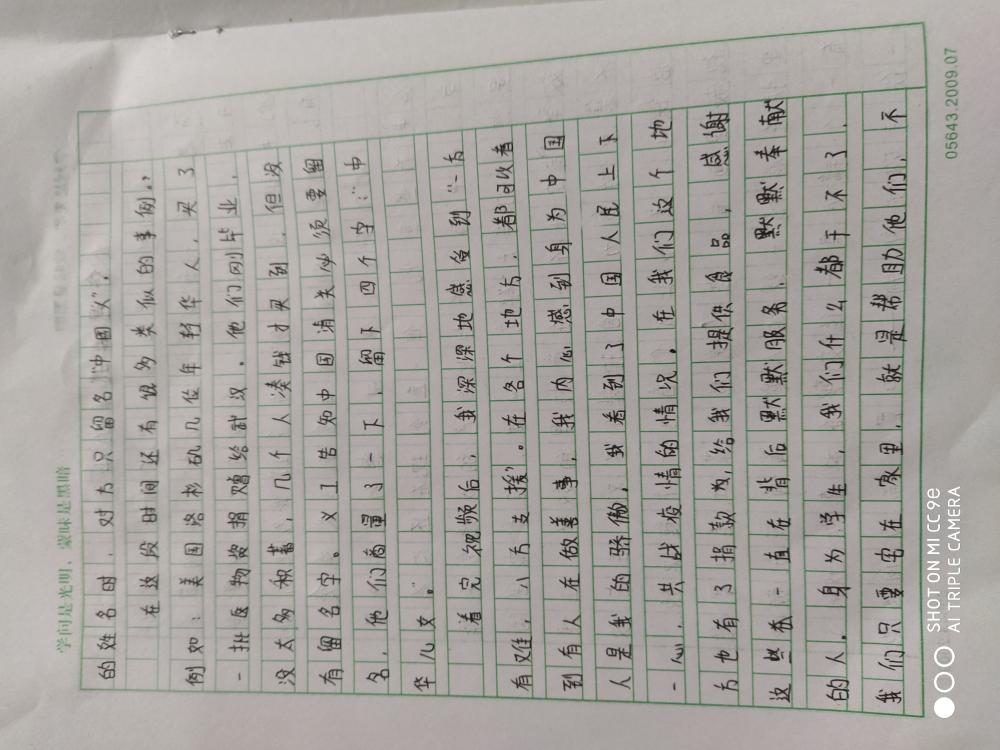 学问是光明，蒙昧是黑暗
的姓名时，对方只留名“中国人”。
在这段时间还有很多类似的事例。，
例如：美国洛杉矶几位年轻华人，买了
一批医物资捐赠给武汉。他们刚毕业，
没太多积蓄，几个人凑钱才买到，但没
有留名字。义工告知中国海关必须要留
名，他们商量了一下，留下四个字：“中
华儿女。
看完视频后，我深深地感受到“一方
有难，八方支援”。在各个地方，都可以看
到有人在做善事，我内心感到身为中国
人是我的骄傲，我看到了中国人民上下
一心，共战疫情的情况。在我们这个地
方也有了捐款为给我们提供食品，感谢
这些私一直在背后默默服务，默默奉献
的人。身为学生，我们什么都干不了，
我们只要宅在家里，就是帮助他们，不
05643.2009.07
SHOT ON MI CC 9e
AI TRIPLE CAMERA